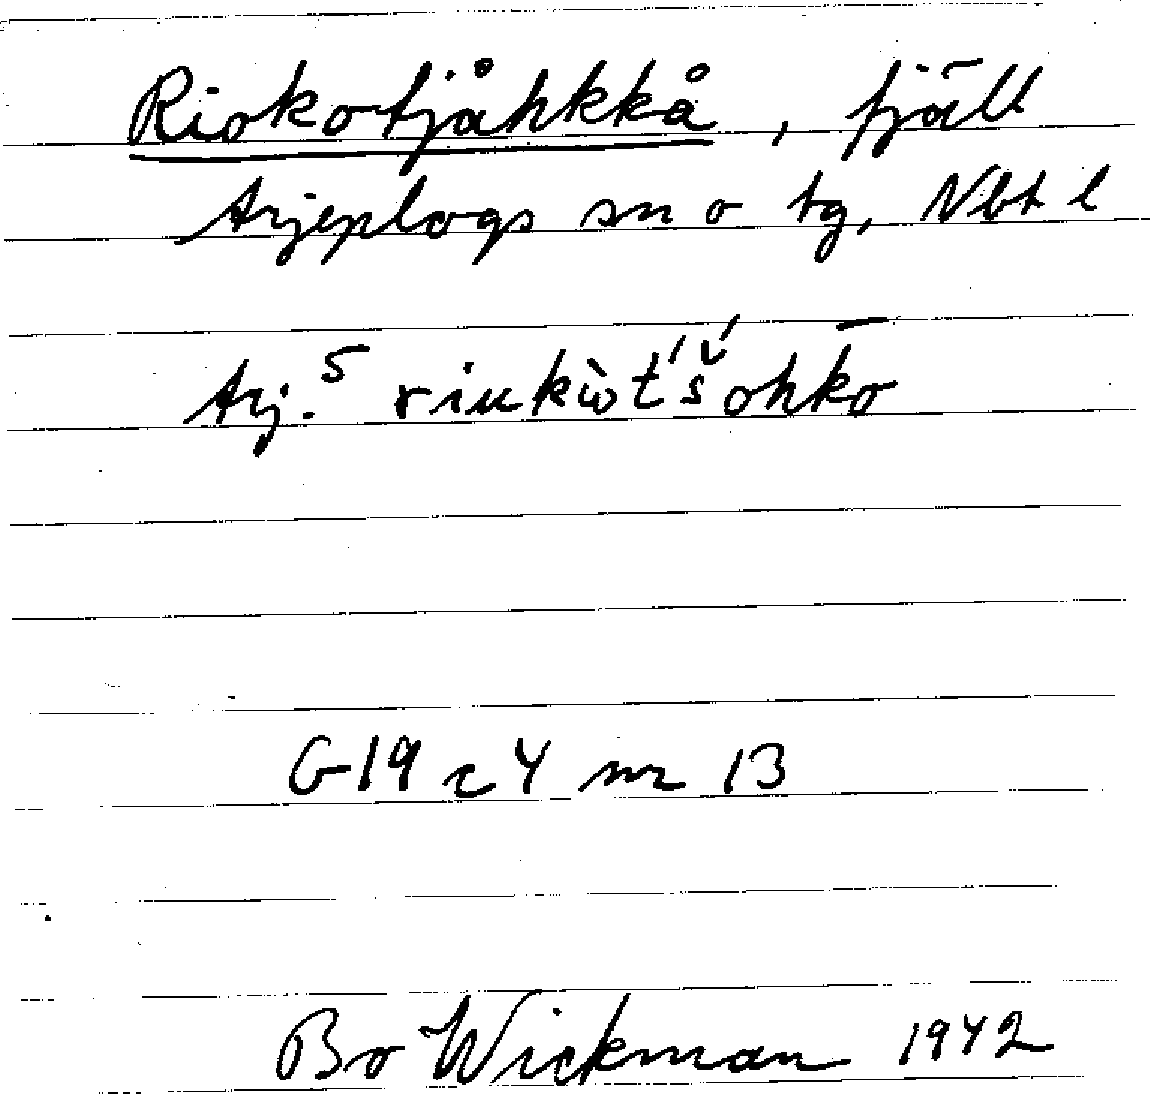 Riokotjåhkkå, fjäll
Arjeplogs sn o tg, Nbt l
Arj. S
G19 c 4 nr 13
Bo Wickman 1942